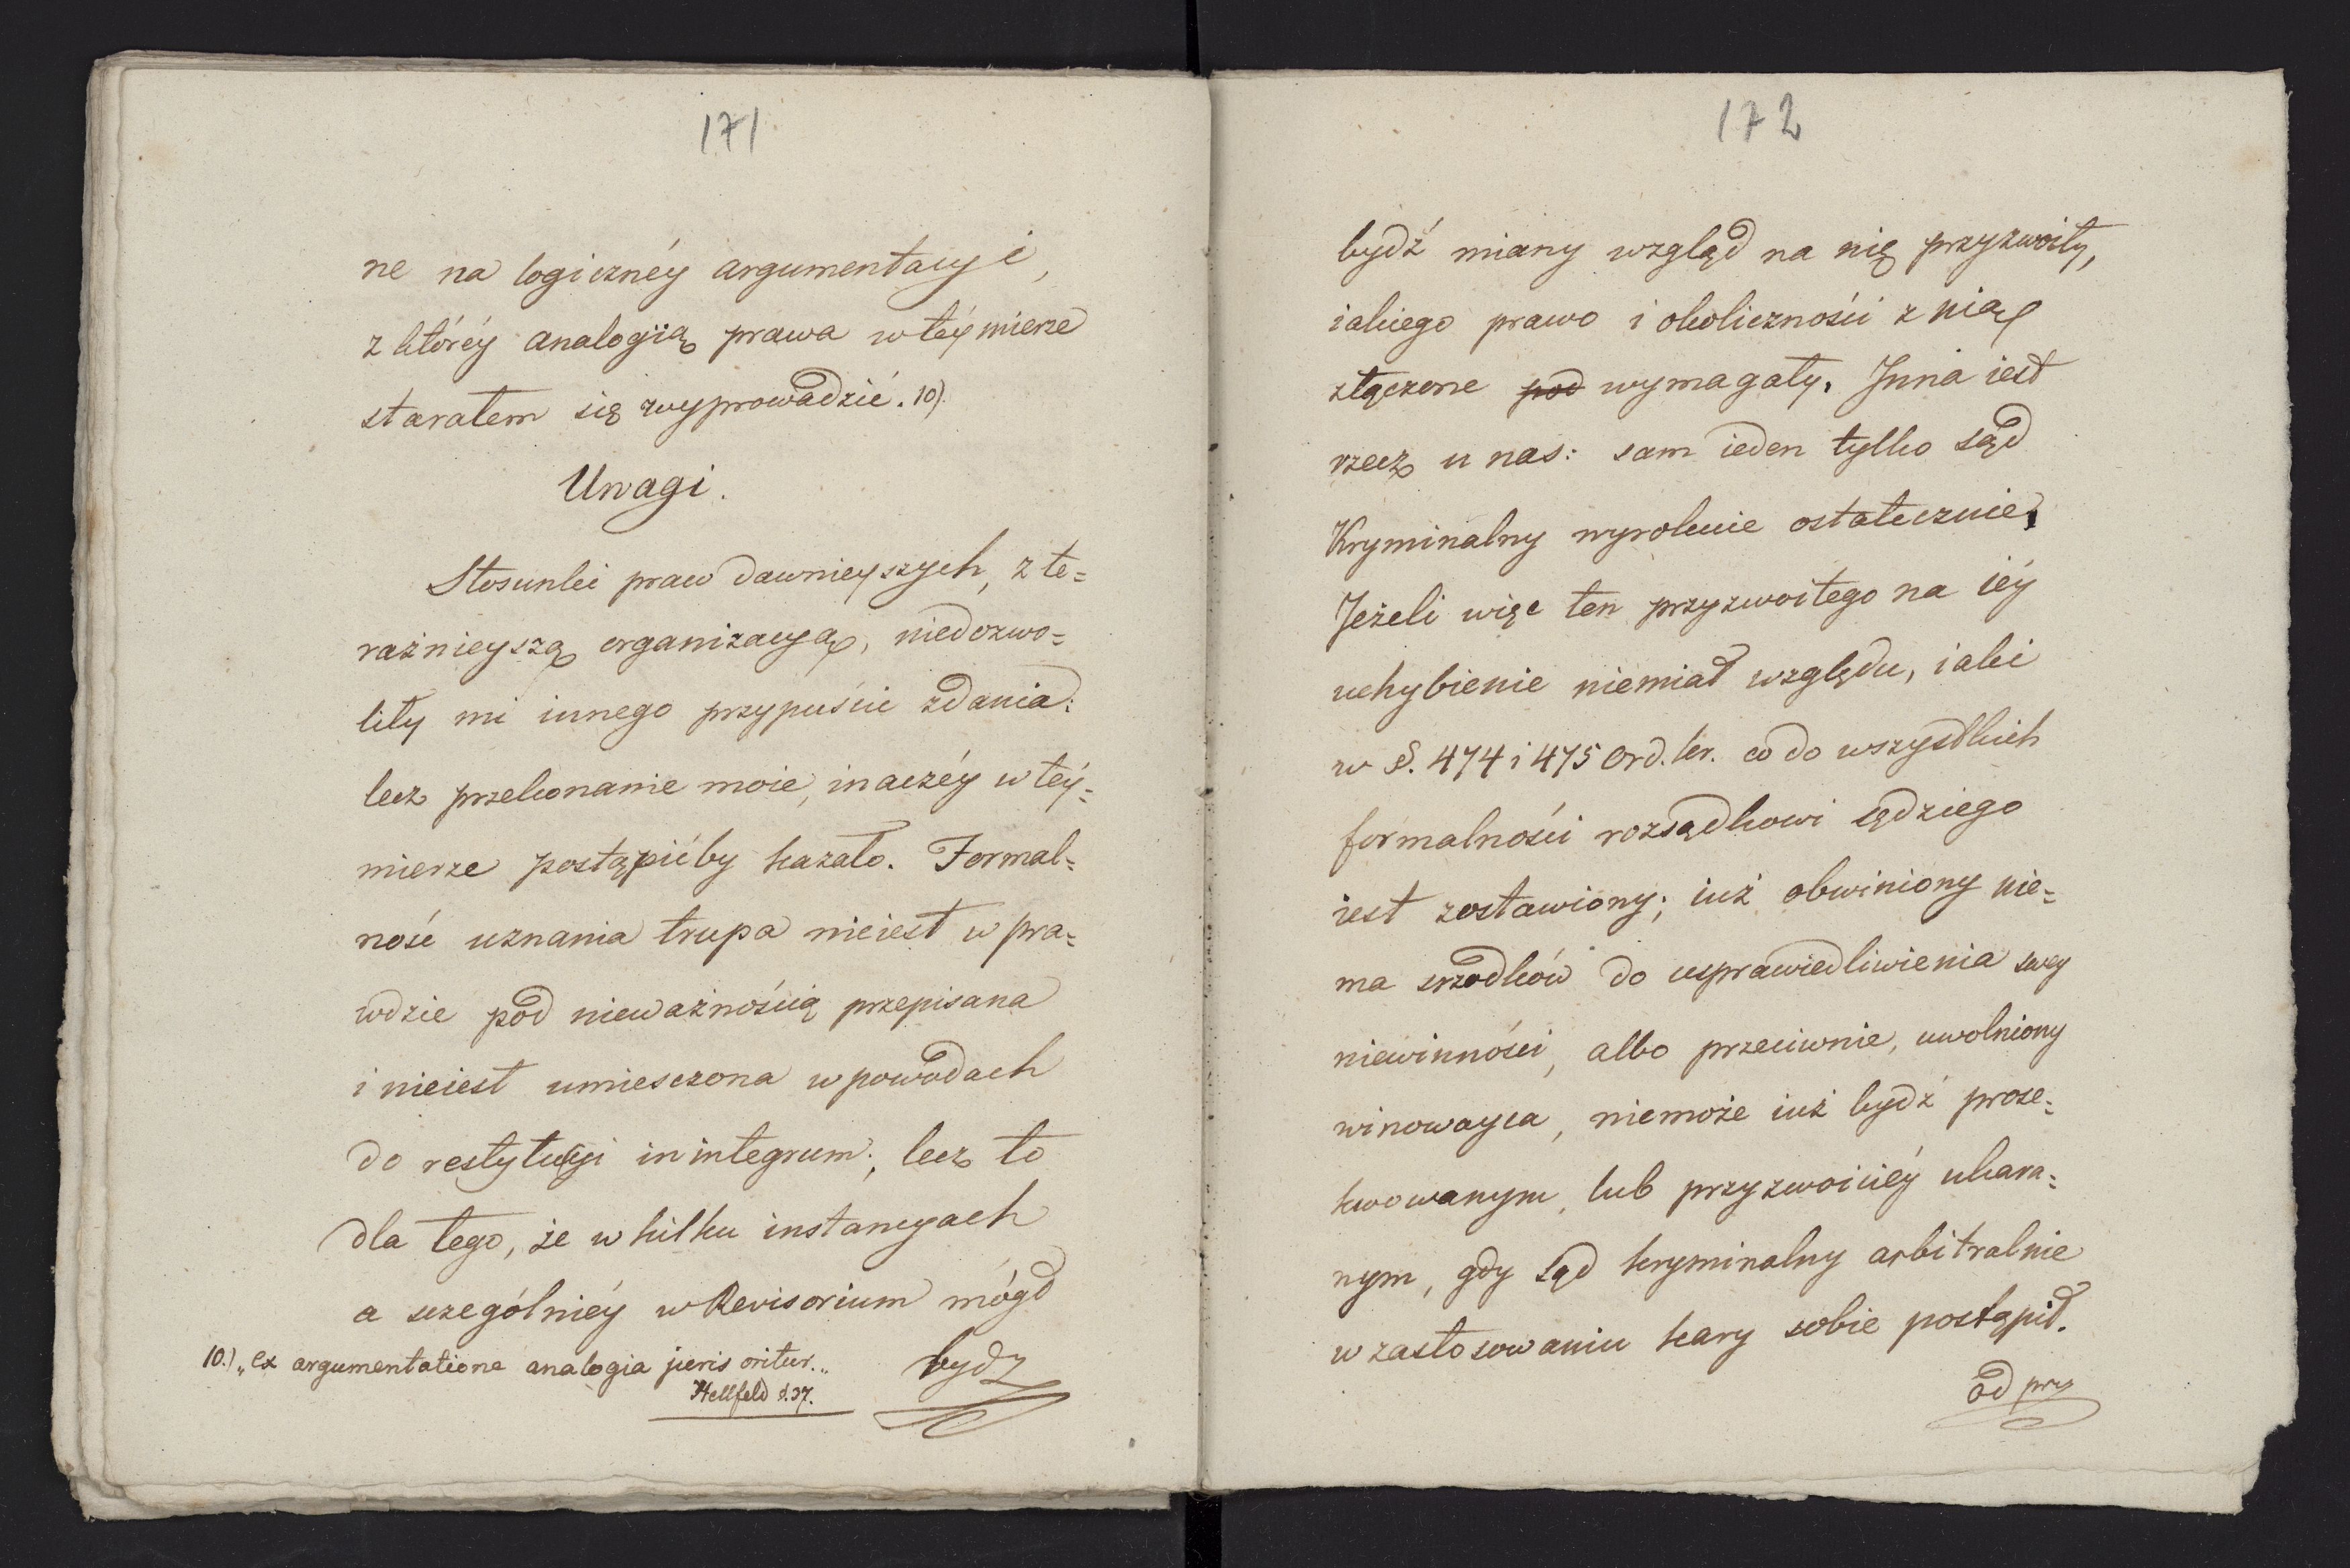 171
ne na logicznéy argumentacyi,
z któréy analogiią prawa w téy mierze
starałem się wyprowadzić. 10).
Uwagi.
Stosunki praw dawnieyszych, z te=
raźnieyszą organizacyą, niedozwo=
liły mi innego przypuścić zdania:
lecz przekonanie moie, inaczéy w téy=
mierze postąpićby kazało. Formal=
ność uznania trupa nieiest w pra=
wdzie pod nieważnością przepisana
i nieiest umiesczona w powodach
do restytucyi in integrum; lecz to
dla tego, że w kilku instancyach
a szczególniéy w Revisorium mógł
10.) „ex argumentatione analogia juris oritur.„
Hellfeld §.37.
bydz
172
bydź miany wzgląd na nię przyzwoity,
iakiego prawo i okoliczności z nią
złączone pod wymagały. Jnna iest
rzecz u nas: sam ieden tylko sąd
Kryminalny wyrokuie ostatecznie.
Jeżeli więc ten przyzwoitego na iéy
uchybienie niemiał względu, iaki
w §. 474 i 475 Ord. kr. co do wszystkich
formalności rozsądkowi sędziego
iest zostawiony; iuż obwiniony nie=
ma srzodków do usprawiedliwienia swey
niewinności, albo przeciwnie, uwolniony
winowayca, niemoże iuż bydź prose=
kwowanym, lub przyzwoiciéy ukara=
nym, gdy sąd kryminalny arbitralnie
w zastosowaniu kary sobie postąpił.
Od przy